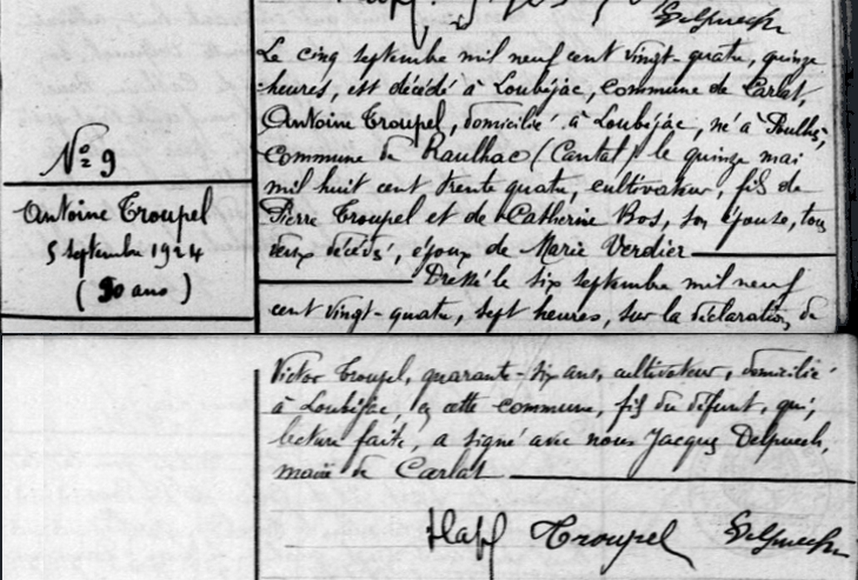 Delpuech
Le cinq septembre mil neuf cent vingt-quatre, quinze
heures, est décédé à Loubéjac, commune de Carlat,
Antoine Troupel, domicilié à Loubéjac, né à
commune de Raulhac (Cantal) le quinze mai
mil huit cent trente quatre, cultivateur, fils de
Pierre Troupel et de Catherine Bos, son épouse, tous
deux décédés, époux de Marie Verdier
Dressé le six septembre mil neuf
cent vingt-quatre, sept heures, sur la déclaration de
No 9
Antoine Troupel
5 septembre 1924
(90 ans)
Victor Troupel, quarante-six ans, cultivateur, domicilié
à Loubéjac, en cette commune, fils du défunt, qui,
lecture faite, a signé avec nous Jacques Delpuech,
maire de Carlat
Troupel Delpuech